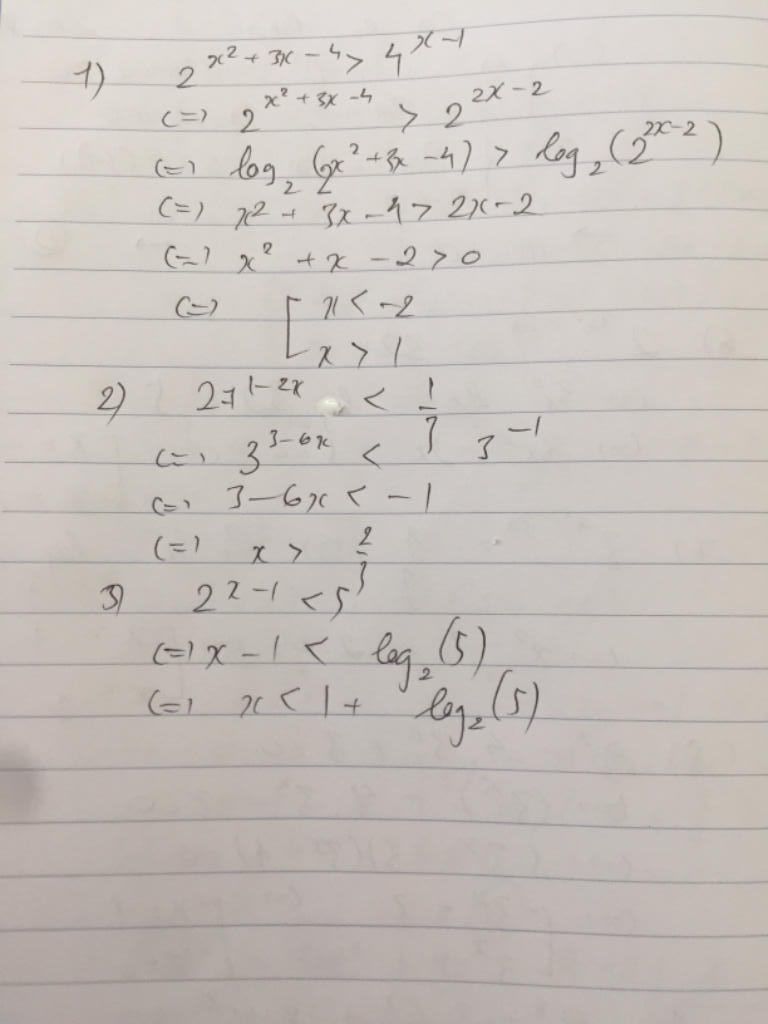 1) 2^{x² + 3x - 4} > 4^{x-1}
(=) 2^{x² + 3x - 4} > 2^{2x - 2}
(=) log₂ (2^{x² + 3x - 4}) > log₂ (2^{2x-2})
(=) x² + 3x - 4 > 2x - 2
(=) x² + x - 2 > 0
(=) [ x < -2
x > 1
2) 27^{1-2x} < 1/3
(=) 3^{3-6x} < 3^{-1}
(=) 3 - 6x < -1
(=) x > 2/3
3) 2^{x-1} < 5
(=) x - 1 < log₂(5)
(=) x < 1 + log₂(5)